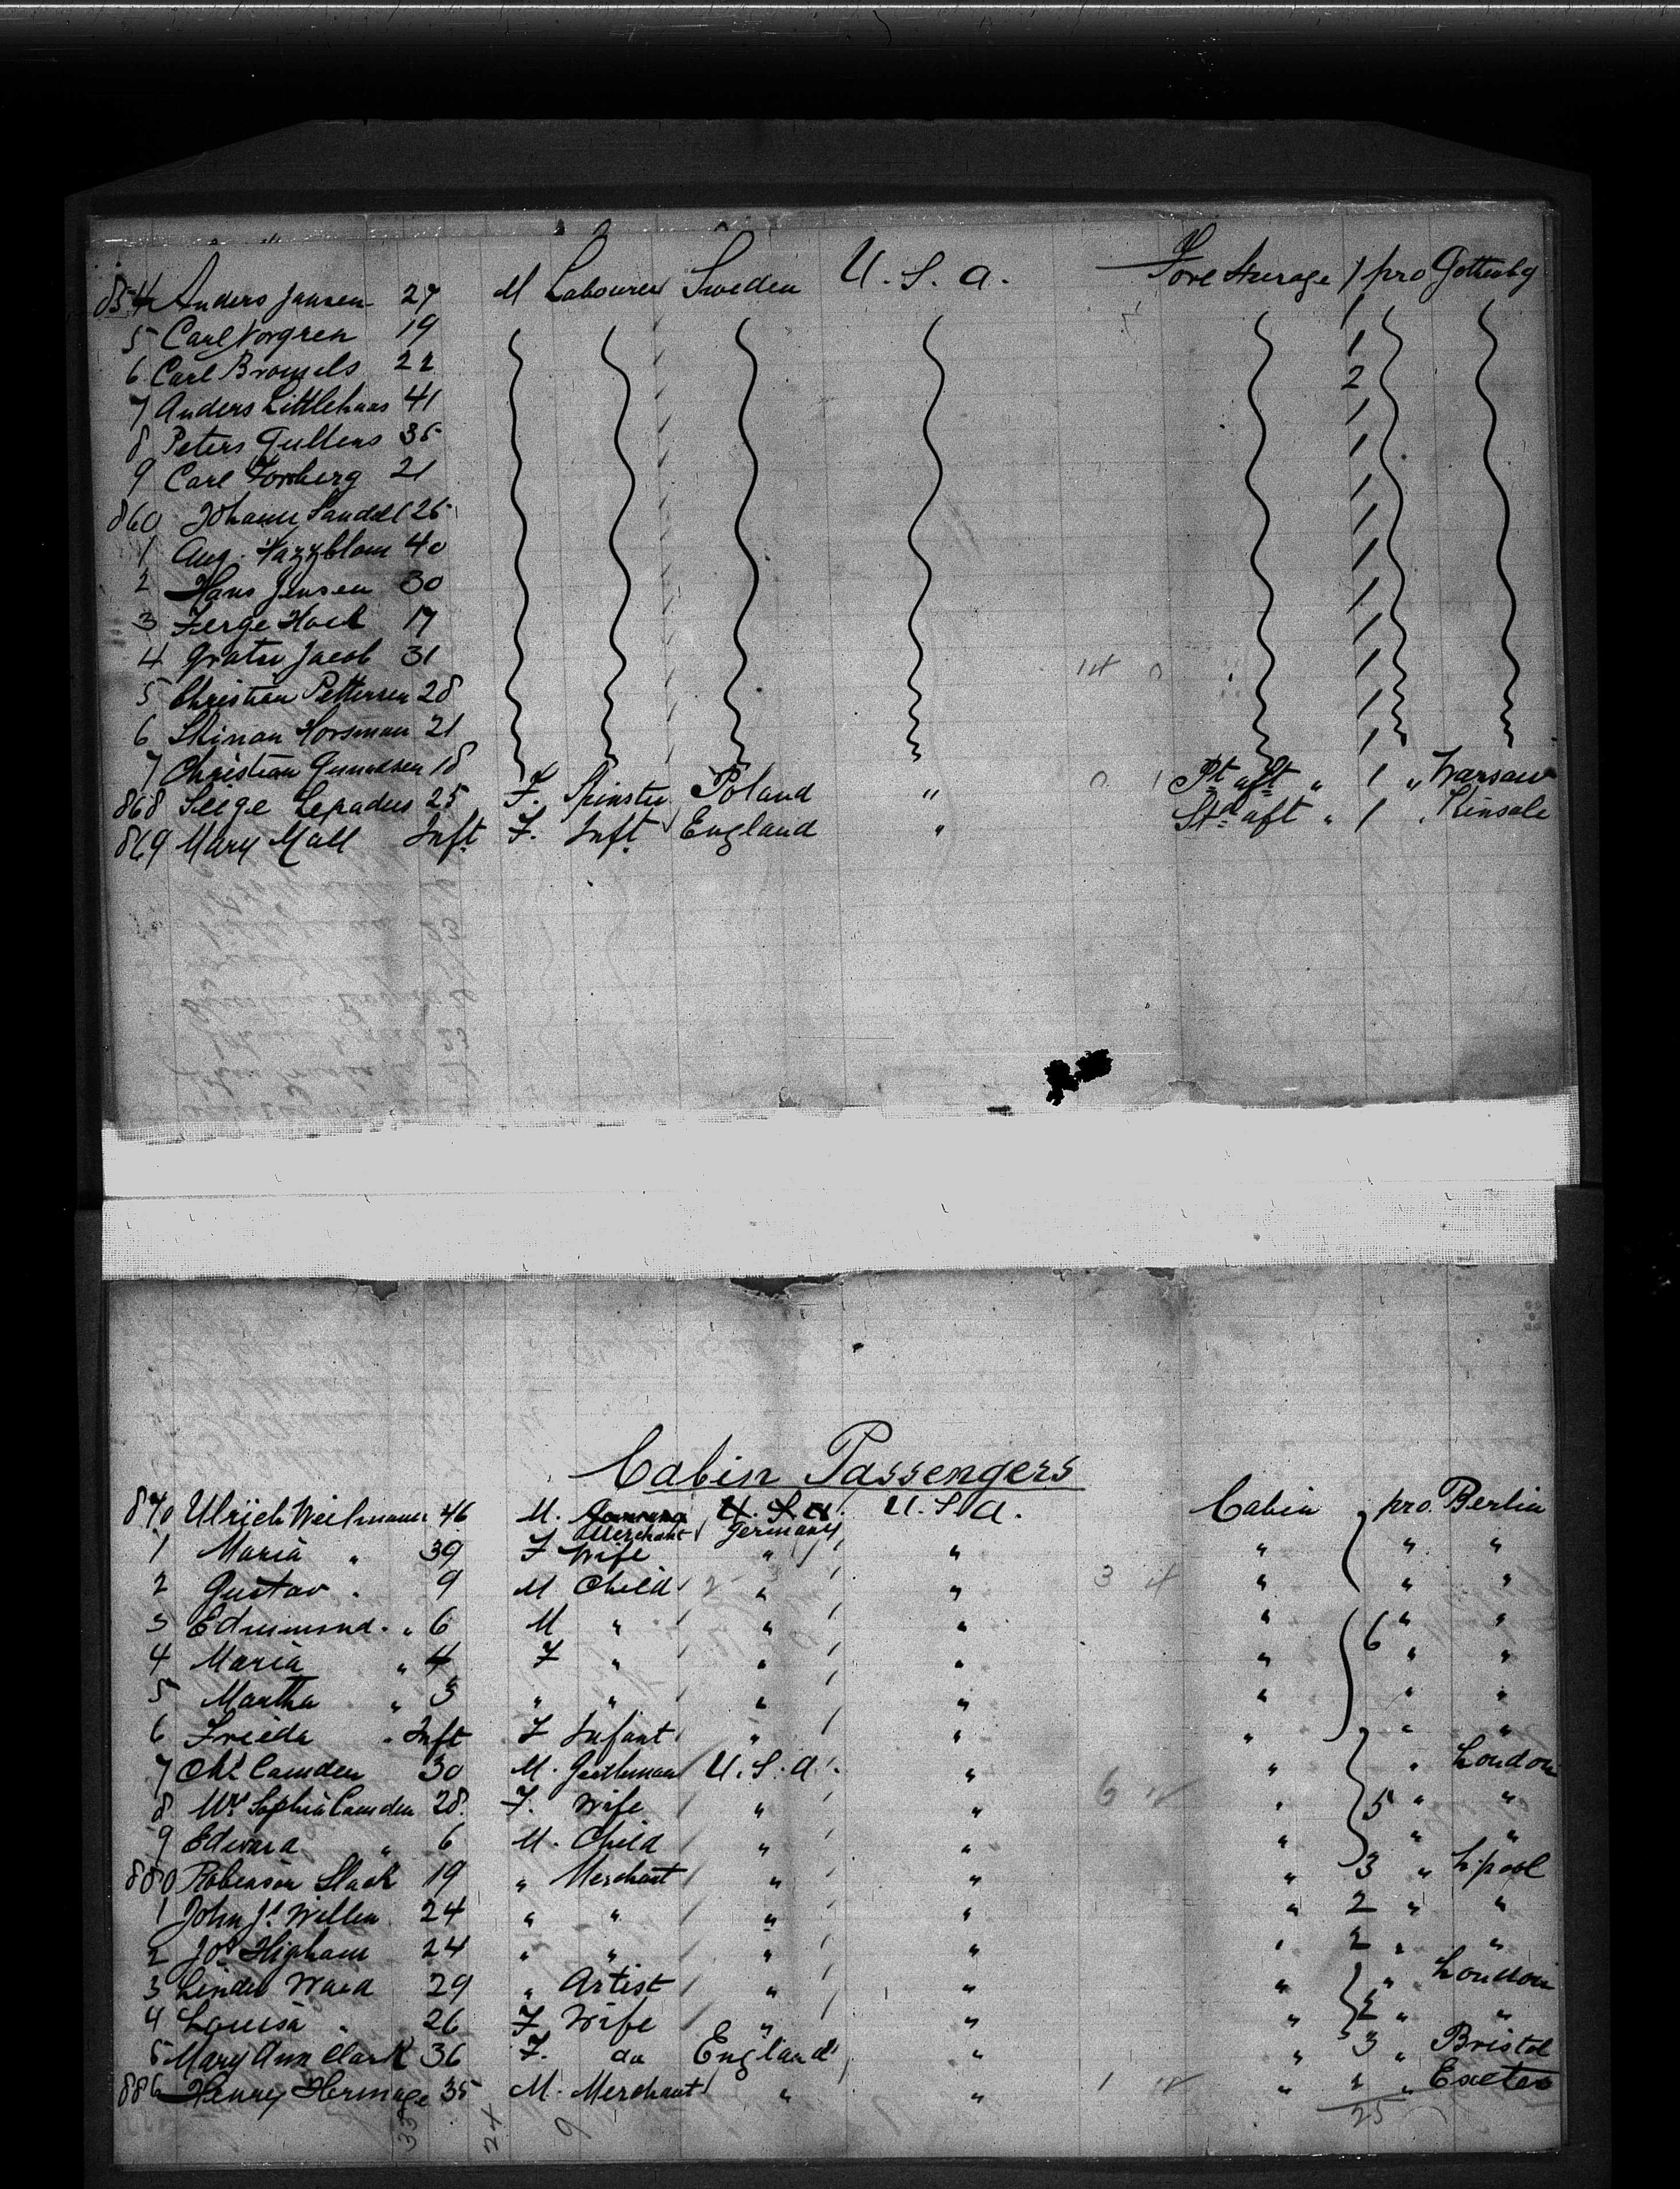 854 Anders Jansen 27 M Labourer Sweden U. S. A. Fore Steerage 1 pro Gottenbg
5 Carl Norgren 19 1
6 Carl 22 1
7 Anders Littlehaas 41 2
8 Peters Gullens 35 1
9 Carl 21 1
860 Johann Sandell 26 1
1 Aug. 40 1
2 Hans Jensen 30 1
3 Ferge Hock 17 1
4 Jacob 31 1
5 Christian Pettersen 28 1
6 Horsman 21 1
7 Christian 18 1
868 Lepadus 25 F. Spinster Poland " Pt aft " 1 " Warsaw
869 Mary Mall Inft F. Inft England " Stb aft " 1 " Kinsale
14 0
0 1
Cabin Passengers
870 Ulrich Weilmann 46 M. U. S. A. U. S. A. Cabin pro. Berlin
Merchant Germany
1 Maria " 39 F Wife " " " " "
2 Gustav " 9 M Child " " 3 4 " " "
3 Edmmond " 6 M " " " " " "
4 Maria " 4 F " " " " 6 " "
5 Martha " 3 " " " " " " "
6 Frieda " Inft F Infant " " " " "
7 Chs Camden 30 M. Gentleman U. S. A. " " " London
8 Mrs Sophia Camden 28. F. Wife " " 6 " 5 " "
9 Edward " 6 M. Child " " " " "
880 Robinson Slack 19 " Merchant " " " 3 " L'pool
1 John Js. Willen 24 " " " " " 2 " "
2 Jos Higham 24 " " " " " 2 " "
3 Linden Ward 29 " Artist " " " " London
4 Louisa " 26 F Wife " " " 2 " "
5 Mary Ann Clark 36 F. do England " " 3 " Bristol
886 Henry Hermage 35 M. Merchant " " 1 " 2 " Exeter
33 24 9 25